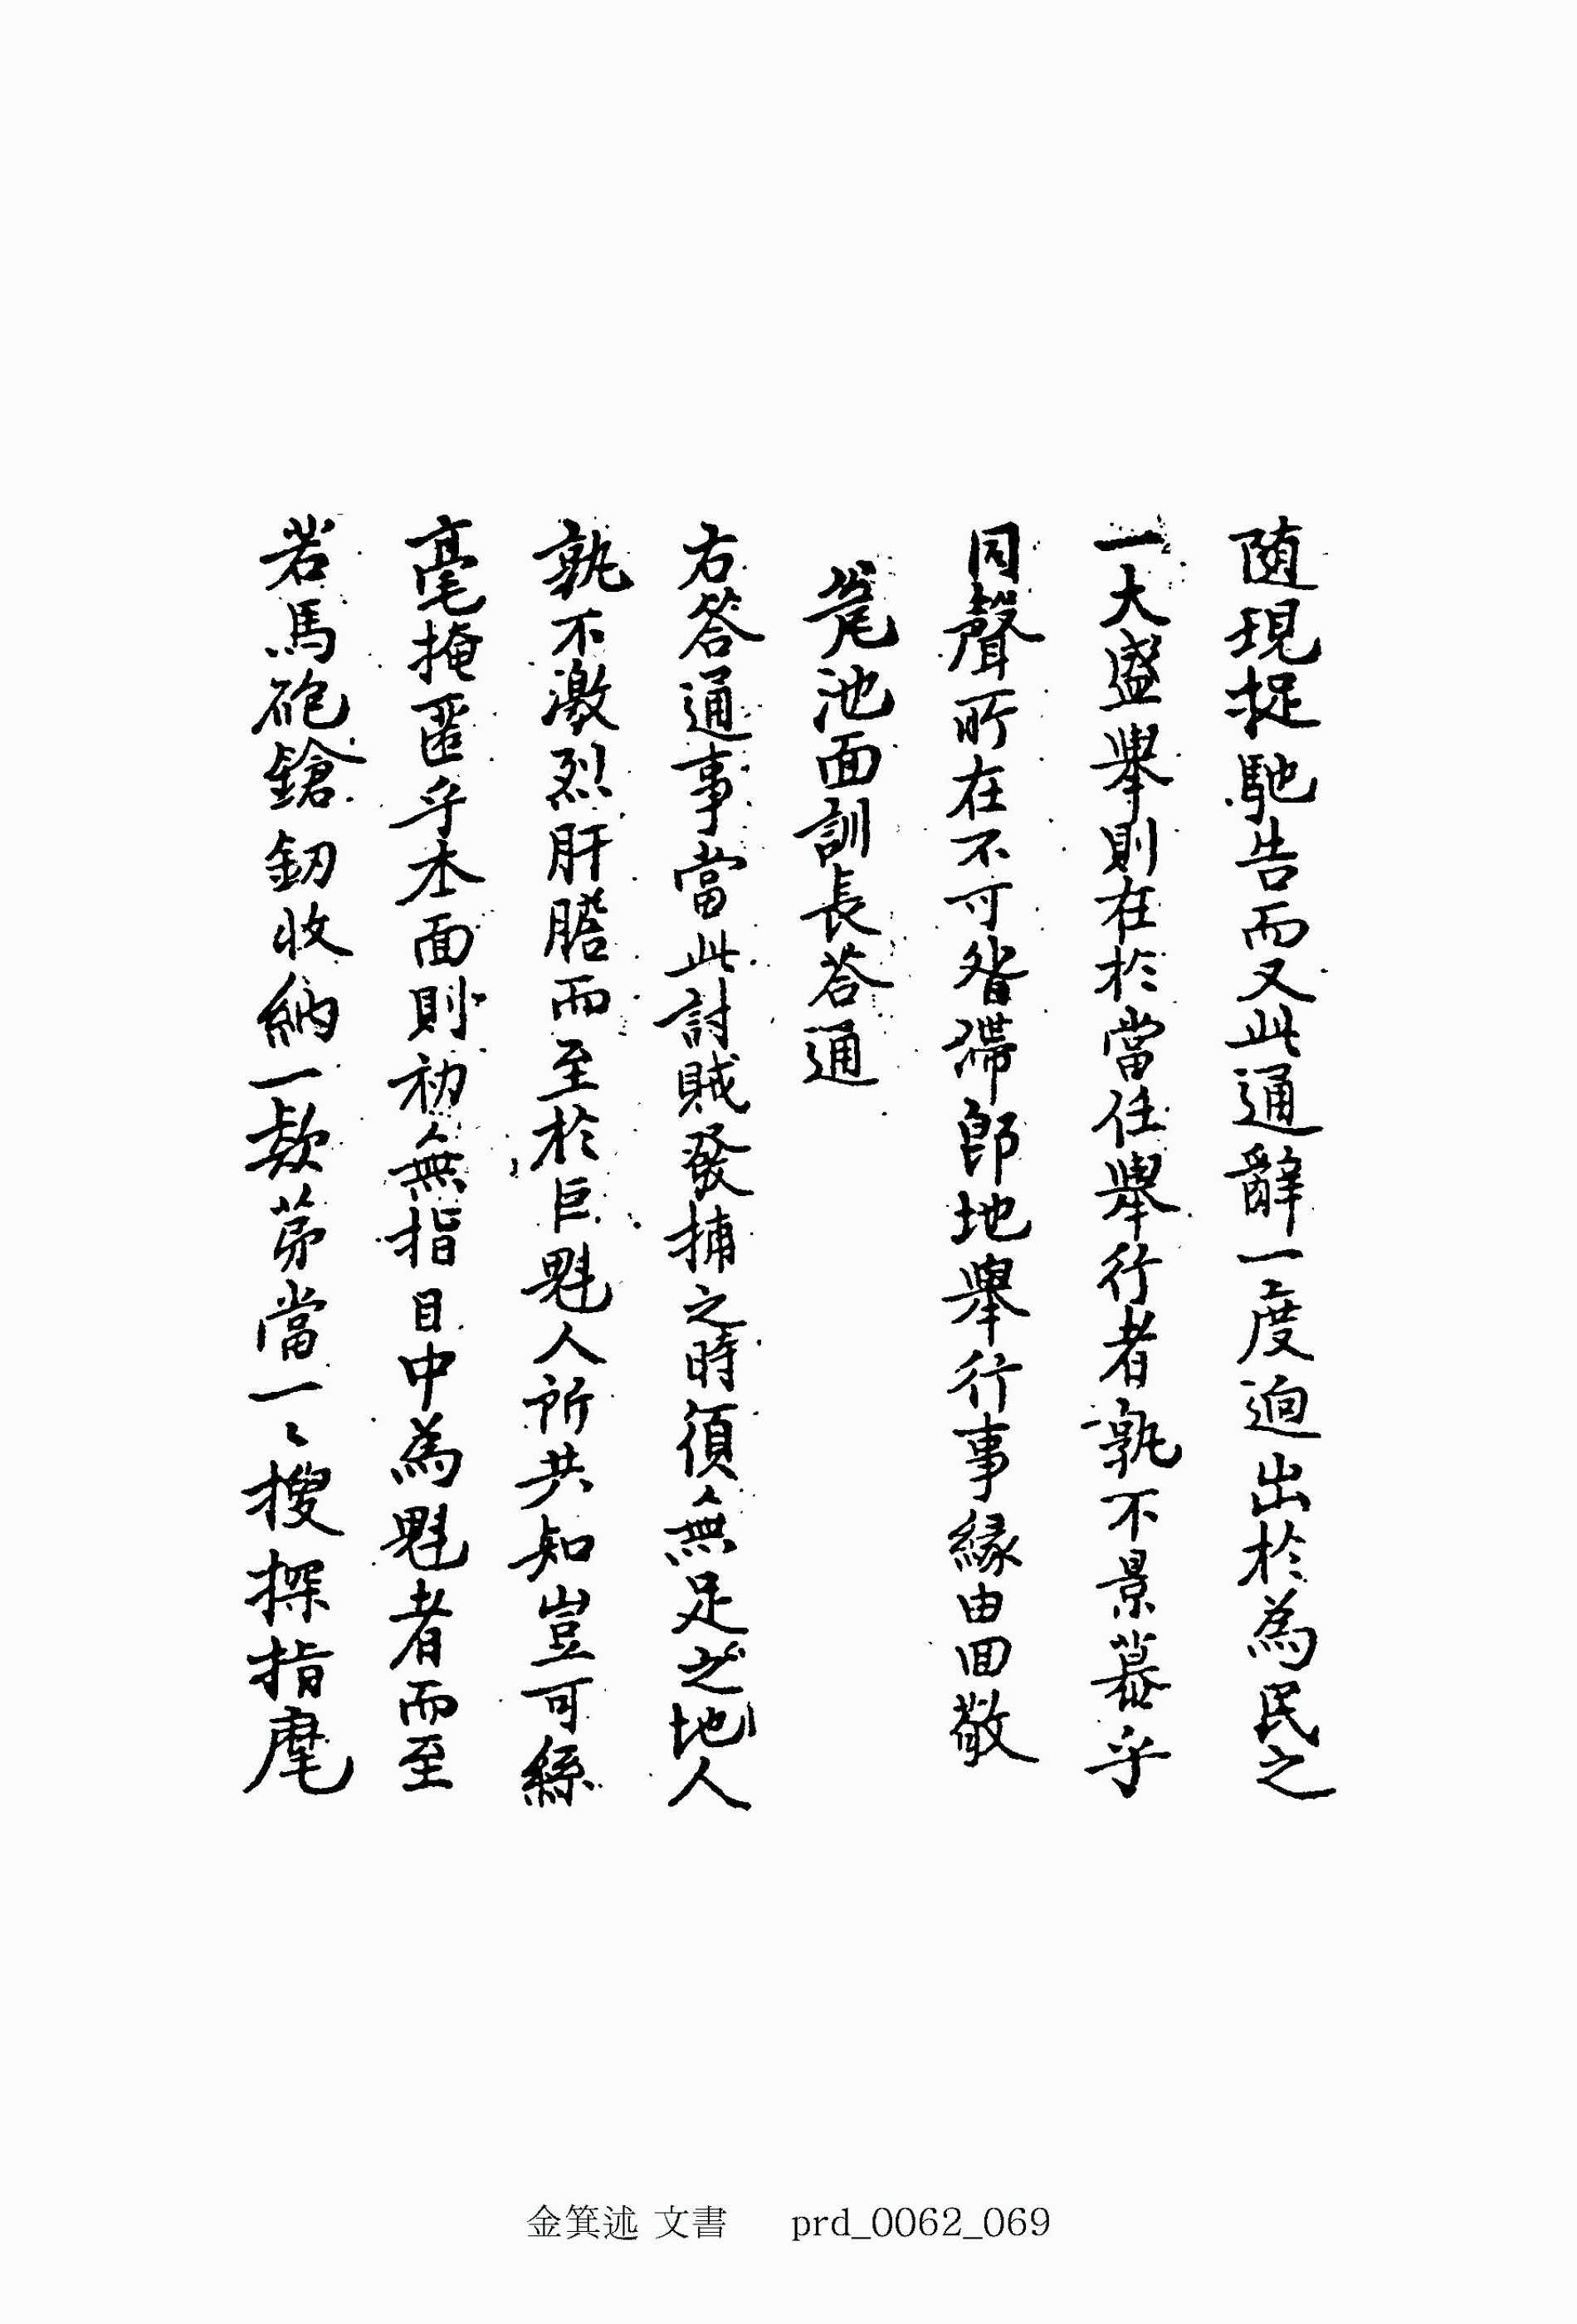 随現捉馳告而又此通辭一度迥出於為民之
一大盛擧則在於當任擧行者孰不景慕乎
同聲所在不可晷滯卽地擧行事緣由回敬
笔池面訓長答通
右答通事當此討賊發捕之時須無足之地人
孰不激烈肝膽而至於巨魁人所共知豈可絲
毫掩匿乎本面則初無指目中為魁者而至
若馬砲鎗釰收納一款苐當一〻搜探指麾
金箕述 文書 prd_0062_069